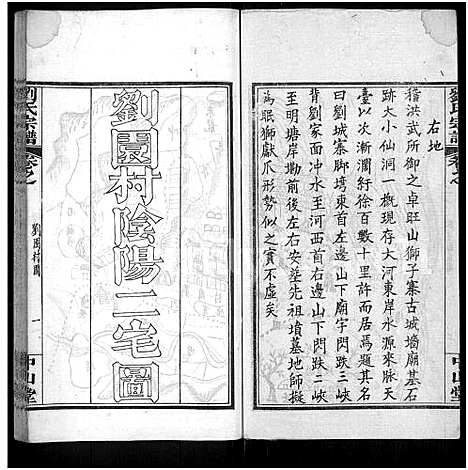 劉氏宗譜
右地
稽洪武所御之卓旺山獅子寨古城墻廟基石
跡大小仙洞一概現存大河東岸水源來脈天
臺以次漸瀾紆徐百數十里許而居焉題其名
曰劉城寨腳塆東首左邊山下廟宇閃跌三峽
背劉家面小水至河西首右邊山下閃跌二峽
至明塘岸墈前後左右安葬先祖墳墓地師擬
為眠獅獻爪形勢似之實不虛矣
中山堂
劉園村陰陽二宅圖
劉氏宗譜
一
中山堂